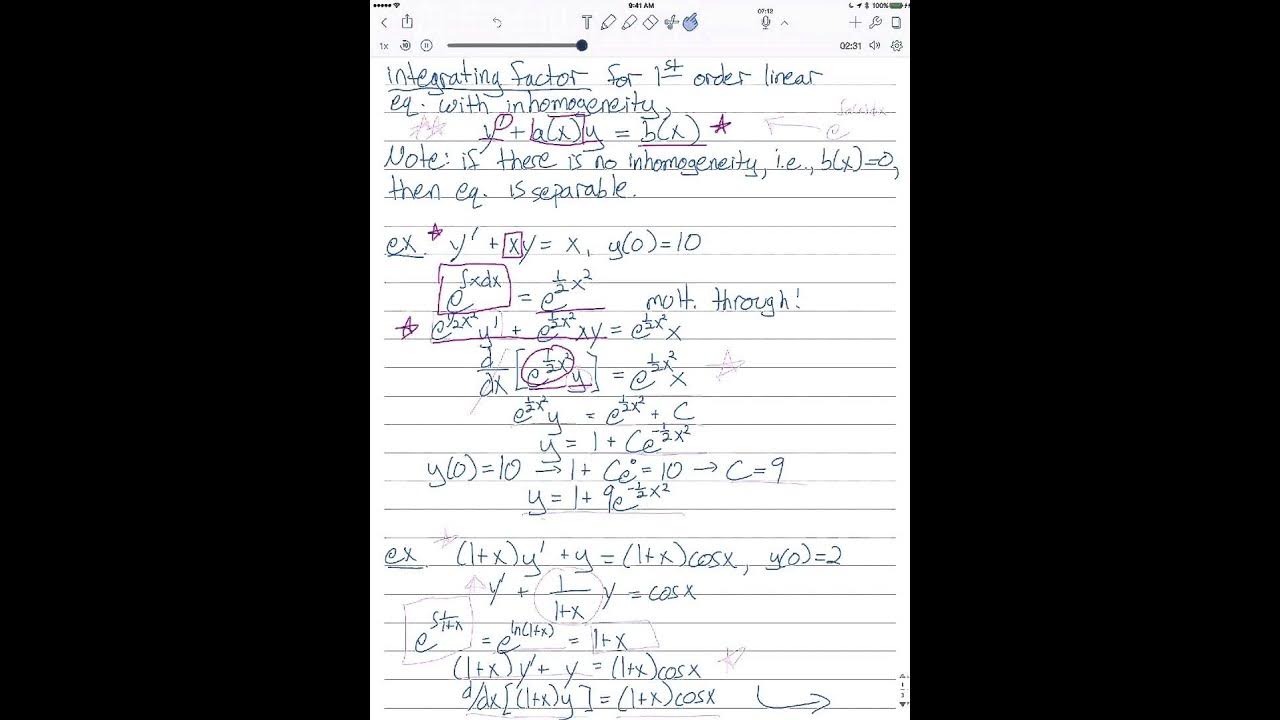 9:41 AM
100%
07:12
1x
02:31
integrating factor for 1st order linear
eq. with inhomogeneity,
y' + a(x)y = b(x)
e^∫a(x)dx
Note: if there is no inhomogeneity, i.e., b(x)=0,
then eq. is separable.
ex. y' + xy = x, y(0)=10
e^∫xdx = e^½x² mult. through!
e^½x² y' + e^½x² xy = e^½x² x
d/dx [e^½x² y] = e^½x² x
e^½x² y = e^½x² + C
y = 1 + Ce^-½x²
y(0)=10 → 1 + Ce⁰ = 10 → C=9
y = 1 + 9e^-½x²
ex. (1+x)y' + y = (1+x)cosx, y(0)=2
y' + 1/1+x y = cosx
e^∫1/1+x = e^ln(1+x) = 1+x
(1+x)y' + y = (1+x)cosx
d/dx[(1+x)y] = (1+x)cosx
1
3